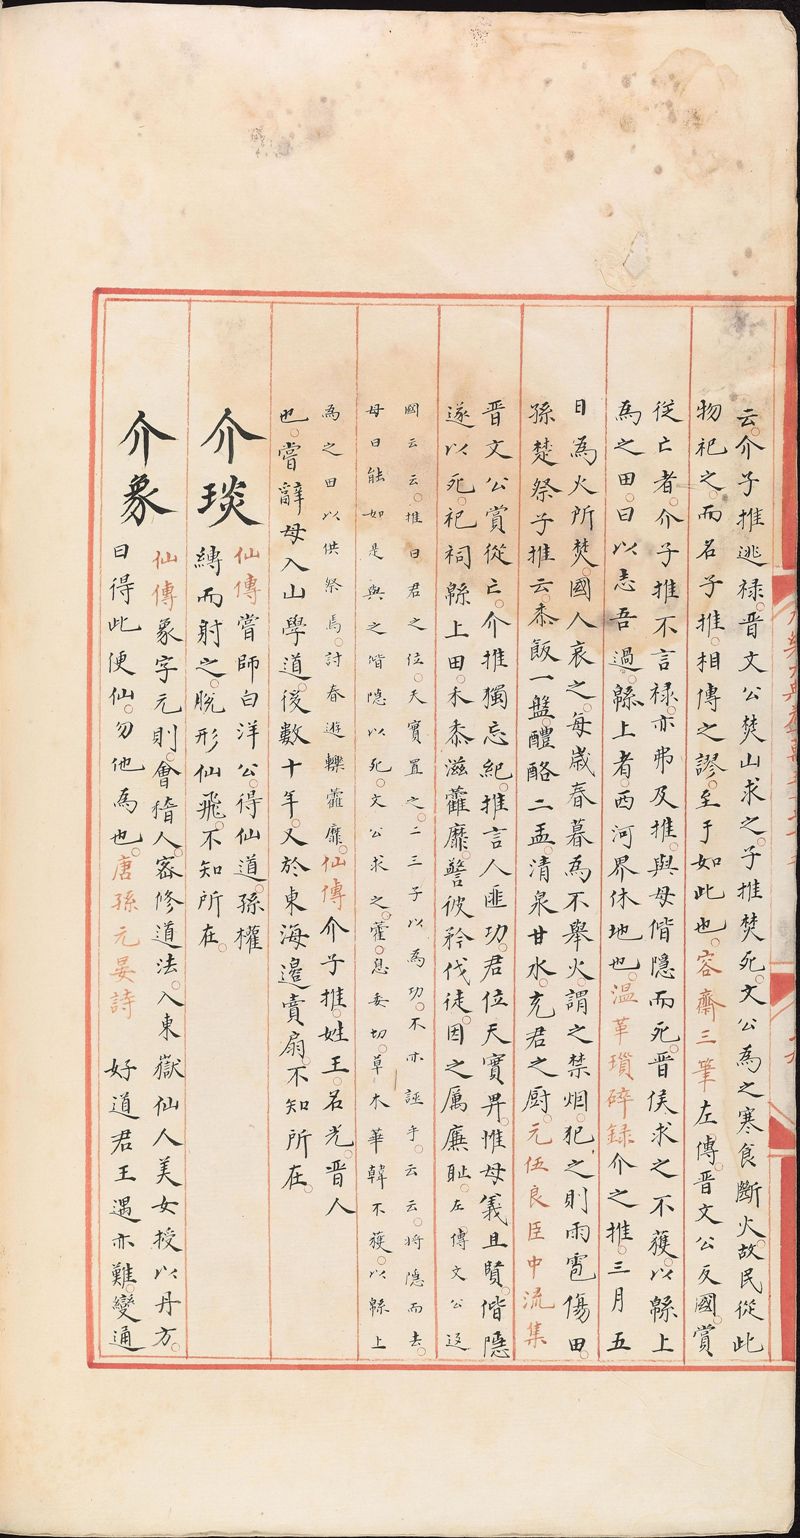 云。介子推逃禄。晋文公焚山求之。子推焚死。文公為之寒食斷火。故民從此
物祀之。而名子推。相傳之謬。至于如此也。容齋三筆左傳。晋文公反國。賞
從亡者。介子推不言禄。亦弗及推。與母偕隱而死。晋侯求之不獲。以緜上
為之田。曰以志吾過。緜上者。西河界休地也。温革瑣碎録介之推。三月五
日為火所焚。國人哀之。每歲春暮為不舉火。謂之禁烟。犯之則雨雹傷田。
孫楚祭子推云。黍飯一盤。醴酪二盂。清泉甘水。充君之厨。元伍良臣中流集
晋文公賞從亡。介推獨忘紀。推言人匪功。君位天實畀。惟母義且賢。偕隱
遂以死。祀祠緜上田。禾黍滋藿靡。警彼矜伐徒。因之厲廉耻。左傳文公返
國云云。推曰君之位。天實置之。二三子以為功。不亦誣乎。云云。將隱而去。
母曰能如是與之偕隱以死。文公求之。藿。息委切。草木華韓不獲。以緜上
為之田以供祭焉。討春遊轢藿靡。仙傳介子推。姓王。名光。晋人
也。嘗辭母入山學道。後數十年。又於東海邊賣扇。不知所在。
介琰 仙傳嘗師白洋公。得仙道。孫權
縛而射之。脫形仙飛。不知所在。
介象 仙傳象字元則。會稽人。密修道法。入東嶽仙人美女授以丹方。
曰得此便仙。勿他為也。唐孫元晏詩 好道君王遇亦難。變通